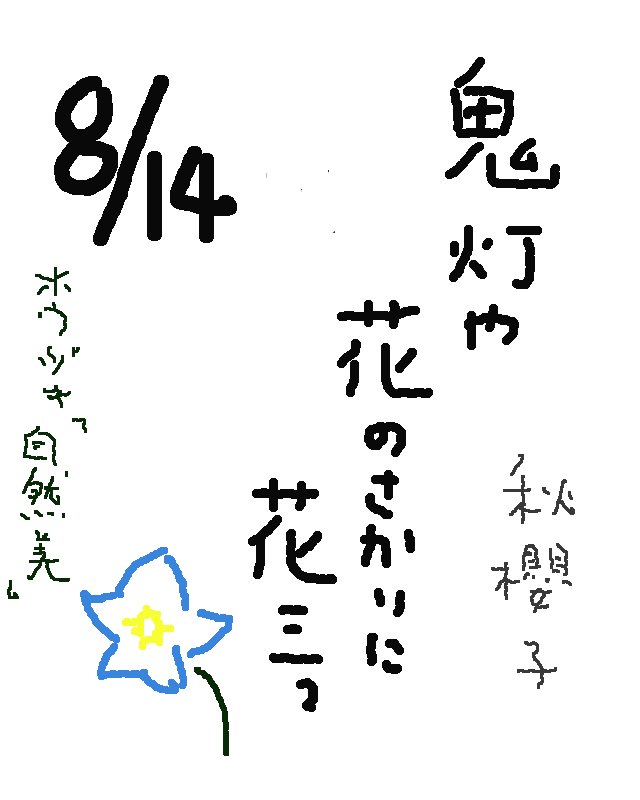 8/14
鬼灯や
花のさかりに
花三つ
秋櫻子
ホウヅキ「自然美」